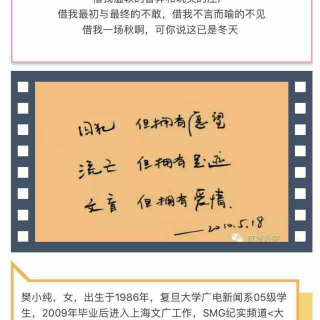 借我最初与最终的不敢，借我不言而喻的不见
借我一场秋啊，可你说这已是冬天
囚犯 但拥有愿望
流亡 但拥有足迹
文盲 但拥有爱情.
——2010.5.18
樊小纯，女，出生于1986年，复旦大学广电新闻系05级学
生，2009年毕业后进入上海文广工作，SMG纪实频道<大